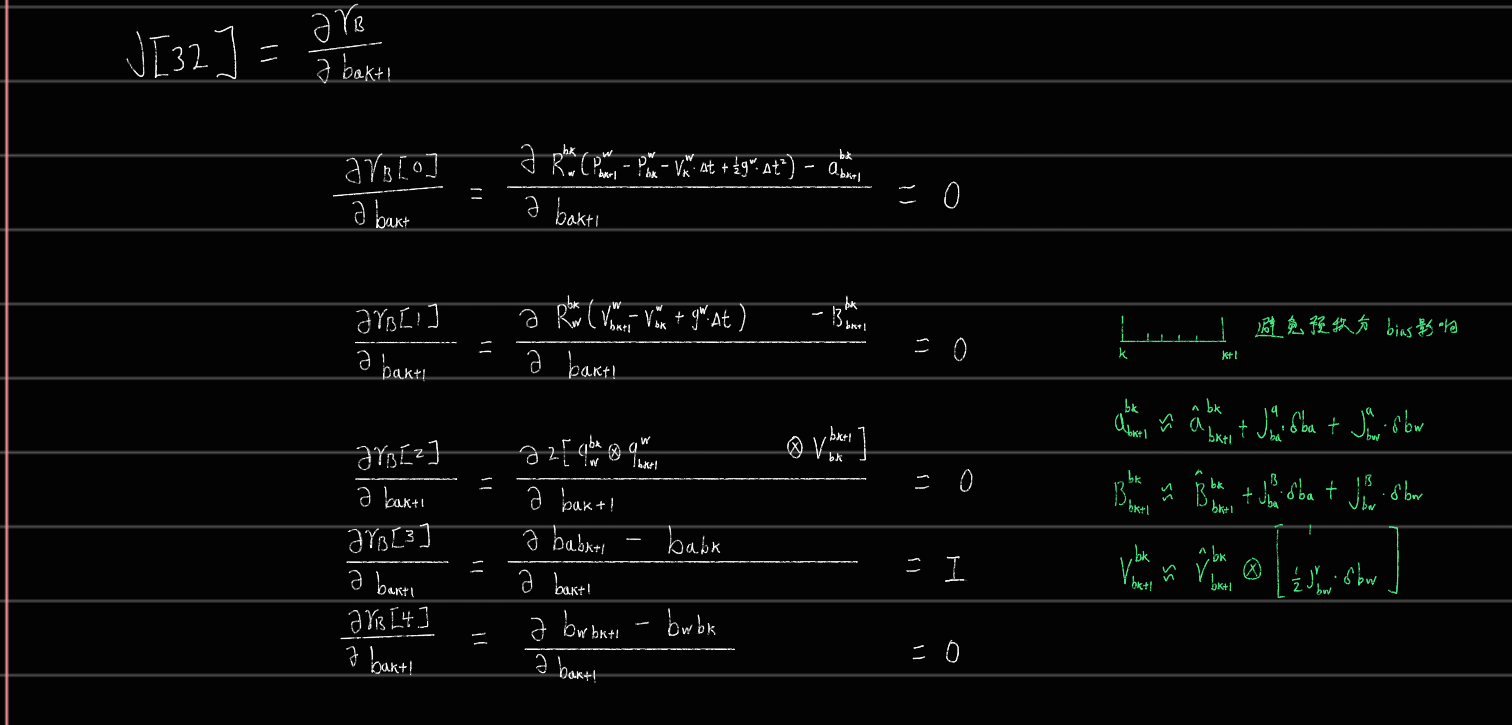 J[32] = ∂r_B / ∂b_{ak+1}
∂r_B[0] / ∂b_{ak+} = ∂ R_w^{bk} (P_{bk+1}^w - P_{bk}^w - V_k^w · Δt + ½ g^w · Δt²) - a_{bk+1}^{bk} / ∂ b_{ak+1} = 0
∂r_B[1] / ∂b_{ak+1} = ∂ R_w^{bk} (V_{bk+1}^w - V_{bk}^w + g^w · Δt) - B_{bk+1}^{bk} / ∂ b_{ak+1} = 0
∂r_B[2] / ∂b_{ak+1} = ∂ 2[ q_w^{bk} ⊗ q_{bk+1}^w ⊗ V_{bk}^{bk+1} ] / ∂ b_{ak+1} = 0
∂r_B[3] / ∂b_{ak+1} = ∂ b_{abk+1} - b_{abk} / ∂ b_{ak+1} = I
∂r_B[4] / ∂b_{ak+1} = ∂ b_{wbk+1} - b_{wbk} / ∂ b_{ak+1} = 0
k k+1 避免预积分 bias影响
a_{bk+1}^{bk} ≈ â_{bk+1}^{bk} + J_{ba}^a · δba + J_{bw}^a · δbw
B_{bk+1}^{bk} ≈ B̂_{bk+1}^{bk} + J_{ba}^B · δba + J_{bw}^B · δbw
V_{bk+1}^{bk} ≈ V̂_{bk+1}^{bk} ⊗ [ 1 / ½ J_{bw}^r · δbw ]